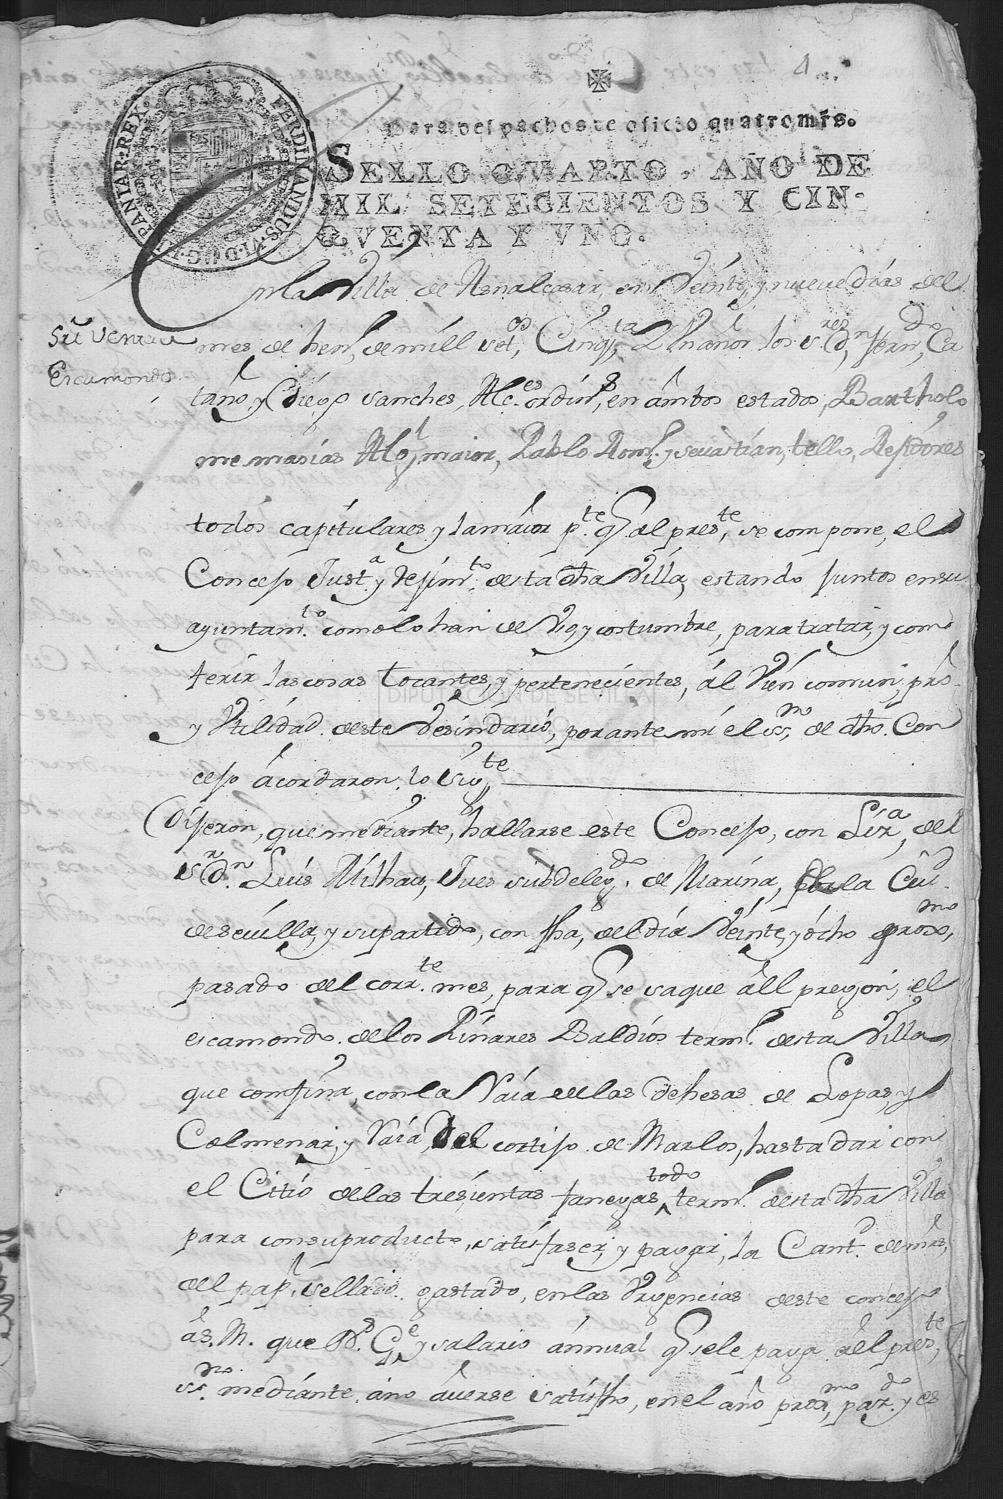 1
Para despachos de oficio quatro mrs.
SELLO QVARTO, AÑO DE
MIL SETECIENTOS Y CIN-
QVENTA Y VNO.
FERDINANDUS·VI·D·G· HISPANIAR·REX·
En la Villa de Asnalcasar, en Veinte, y nueve dias del
mes, de hen.º de mill set.os Cinq.ta Y Un años los s.res d.n fern.do Ca
taño, y Diego sanches, Alc.es ordin.s en ambos estados, Bartholo
me masias Alg.l maior, Pablo Rom.o y sevastian, tello, Rejidores
todos capitulares y la maior p.te q al pres.te se compone, el
Concejo Just.a y Rejim.to desta dha Villa, estando juntos en su
ayuntam.to como lo han de Uso y costumbre, para tratar, y con
ferir las cosas tocantes, y pertenecientes, ál Vien comun, pro
y Vtilidad deste Vesindario, por ante mi el ss.no de dho Con
cejo acordaron, lo sig.te
Dijeron, que mediante, hallarse este Concejo, con
s.r d.n Luis Milhau, Jues subdeleg.do de Marina, de la Ciu.d
de sevilla, y su partido, con fha, del dia Veinte, y ocho proxi.mo
pasado del corr.te mes, para q se saque ál pregon, el
escamondo de los Pinares Baldios term.o desta Villa,
que confina, con la Raia de las Dehesas de Lopas, y
Colmenar, y Raia, del cortijo de Marlos, hasta dar con
el Citio de las tresientas fanegas todo term.o desta dha Villa
para con su producto, satisfaser, y pagar, la Cant.d de mrs,
del pap.l sellado gastado, en las Urgencias deste concejo
y salario annual q se le paga ál pres.te
ss.no mediante, á no averse satisfho, en el año prox.mo pa.do y es
su Venta
Escamondo
DIPUTACIÓN DE SEVILLA